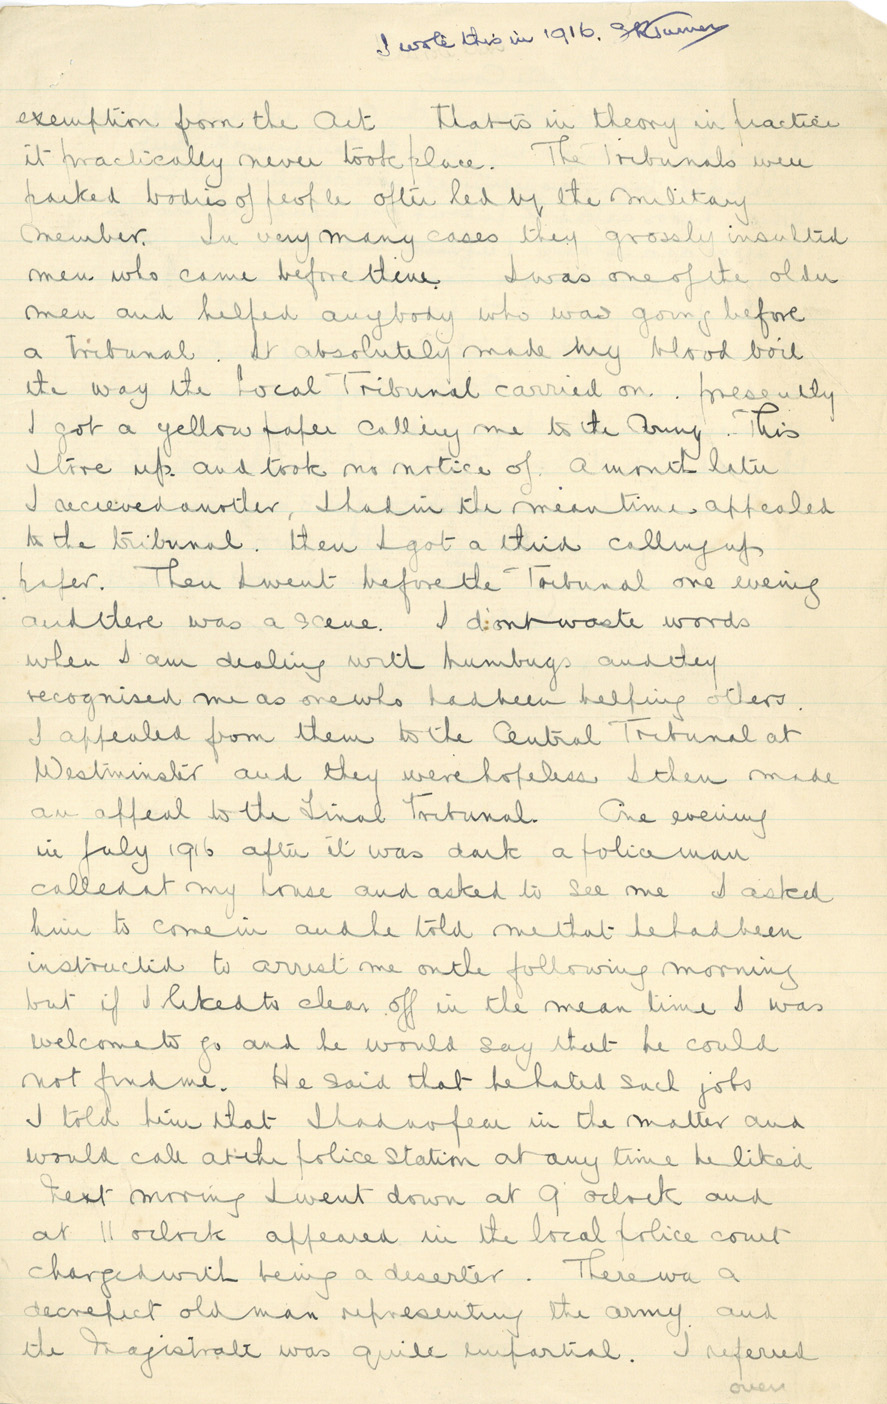 I wote this in 1916. S R Turner
exemption from the Act That is in theory in practice
it practically never took place. The Tribunals were
packed bodies of people often led by the military
member. In very many cases they grossly insulted
men who came before them. I was one of the older
men and helped anybody who was going before
a tribunal. It absolutely made my blood boil
the way the Local Tribunal carried on. presently
I got a yellow paper calling me to the Army. This
I tore up and took no notice of. A month later
I recieved another, I had in the mean time appealed
to the tribunal. then I got a third calling up
paper. Then I went before the Tribunal one evening
and there was a scene. I dont waste words
when I am dealing with humbugs and they
recognised me as one who had been helping others.
I appealed from them to the Central Tribunal at
Westminster and they were hopeless I then made
an appeal to the Final Tribunal. One evening
in July 1916 after it was dark a policeman
called at my house and asked to see me I asked
him to come in and he told me that he had been
instructed to arrest me on the following morning
but if I liked to clear off in the mean time I was
welcome to go and he would say that he could
not find me. He said that he hated such jobs
I told him that I had no fear in the matter and
would call at the police station at any time he liked
Next morning I went down at 9 oclock and
at 11 oclock appeared in the local police court
charged with being a deserter. There wa a
decrepict old man representing the army. and
the Magistrate was quite impartial. I referred
over